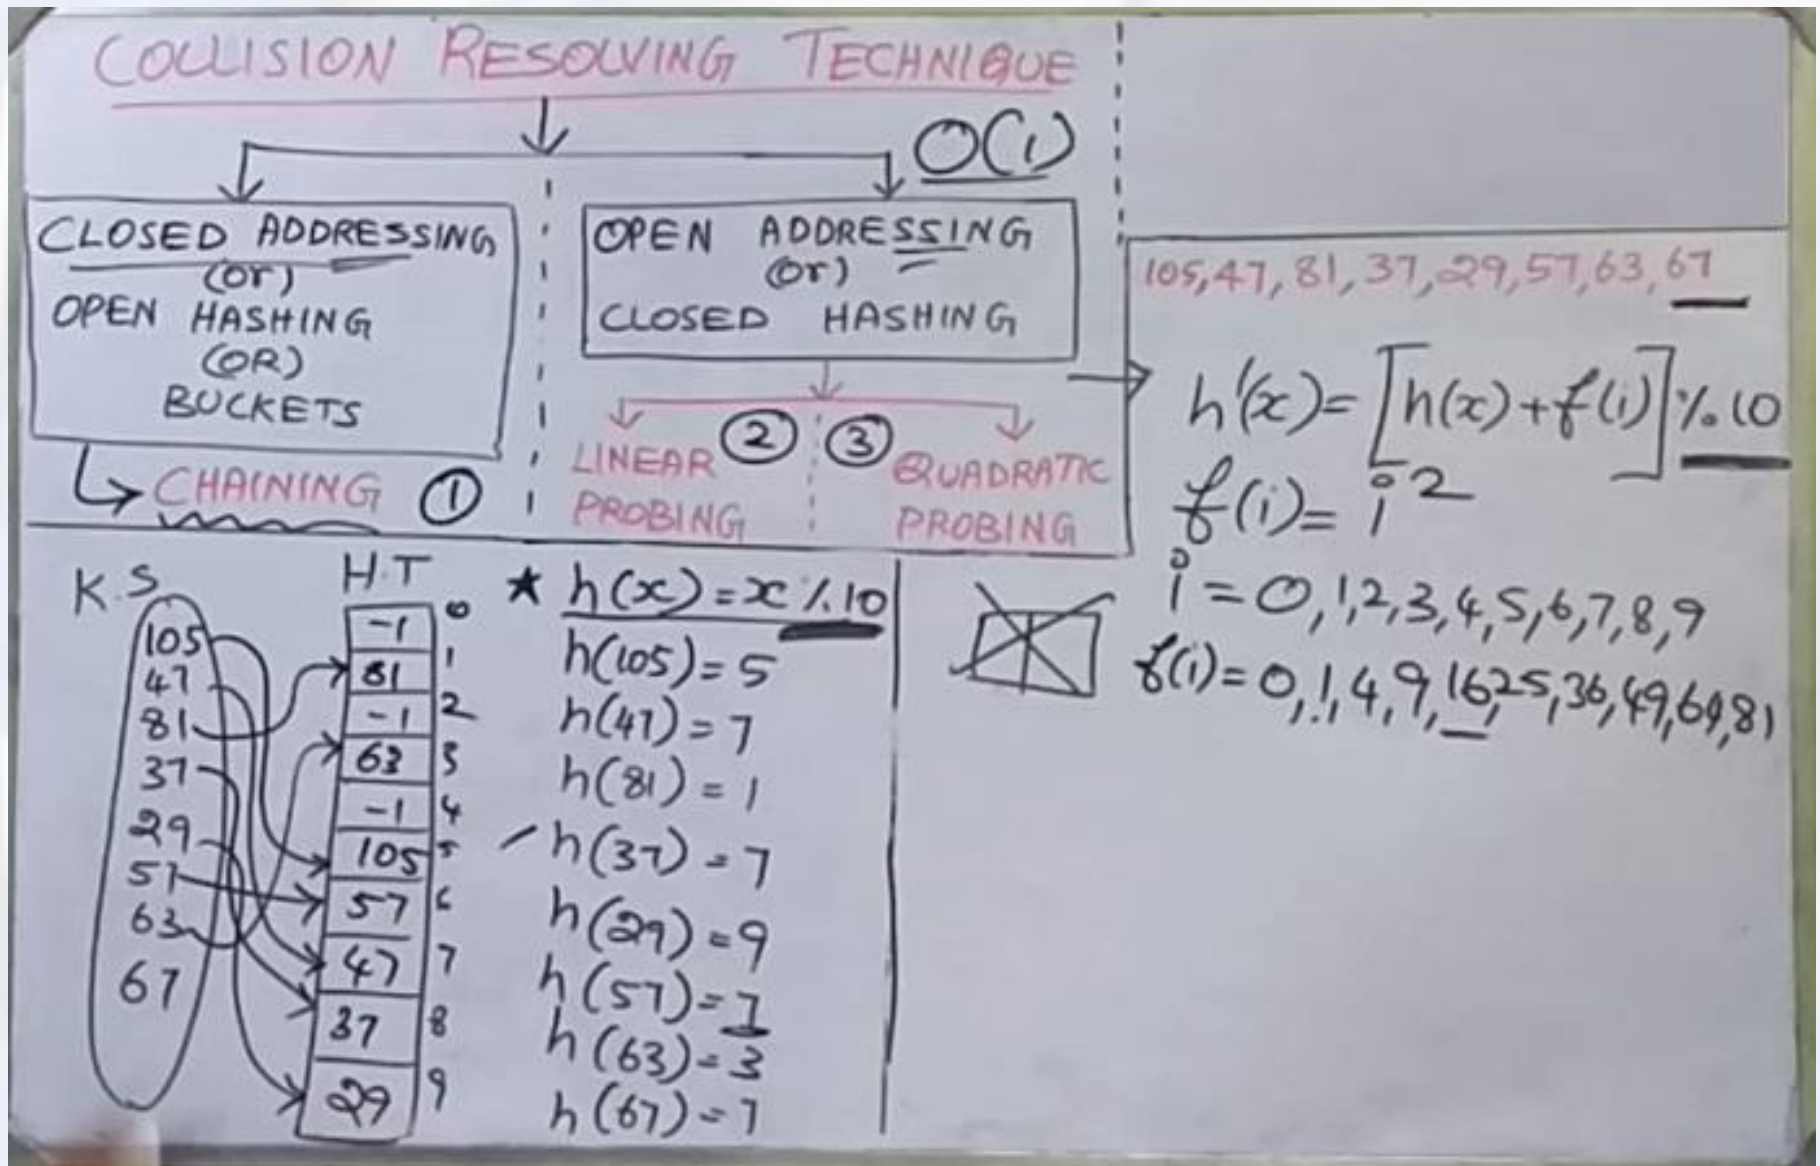 COLLISION RESOLVING TECHNIQUE
O(1)
CLOSED ADDRESSING
(or)
OPEN HASHING
(OR)
BUCKETS
CHAINING ①
OPEN ADDRESSING
(or)
CLOSED HASHING
LINEAR PROBING ②
③ QUADRATIC PROBING
105, 47, 81, 37, 29, 57, 63, 67
h'(x) = [h(x) + f(i)] % 10
f(i) = i²
i = 0, 1, 2, 3, 4, 5, 6, 7, 8, 9
f(i) = 0, 1, 4, 9, 16, 25, 36, 49, 64, 81
K.S
105
47
81
37
29
57
63
67
H.T
-1 0
81 1
-1 2
63 3
-1 4
105 5
57 6
47 7
37 8
29 9
★ h(x) = x % 10
h(105) = 5
h(47) = 7
h(81) = 1
h(37) = 7
h(29) = 9
h(57) = 7
h(63) = 3
h(67) = 7